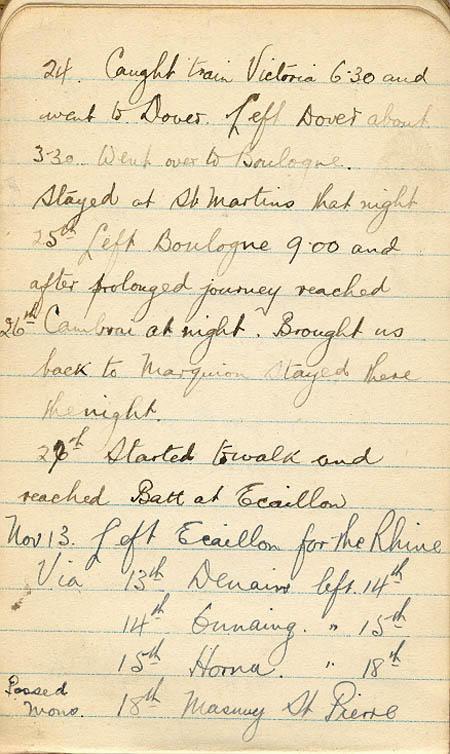 24. Caught train Victoria 6.30 and
went to Dover. Left Dover about
3.30. Went over to Boulogne.
Stayed at St Martins that night
25th Left Boulogne 9.00 and
after prolonged journey reached
26th Cambrai at night. Brought us
back to Marquion stayed there
the night.
27th Started to walk and
reached Batt at Ecaillon
Nov 13. Left Ecaillon for the Rhine
Via 13th Denain left 14th
14th Onnaing. " 15th
15th Hornu. " 18th
Passed
Mons. 18th Masnuy St Pierre